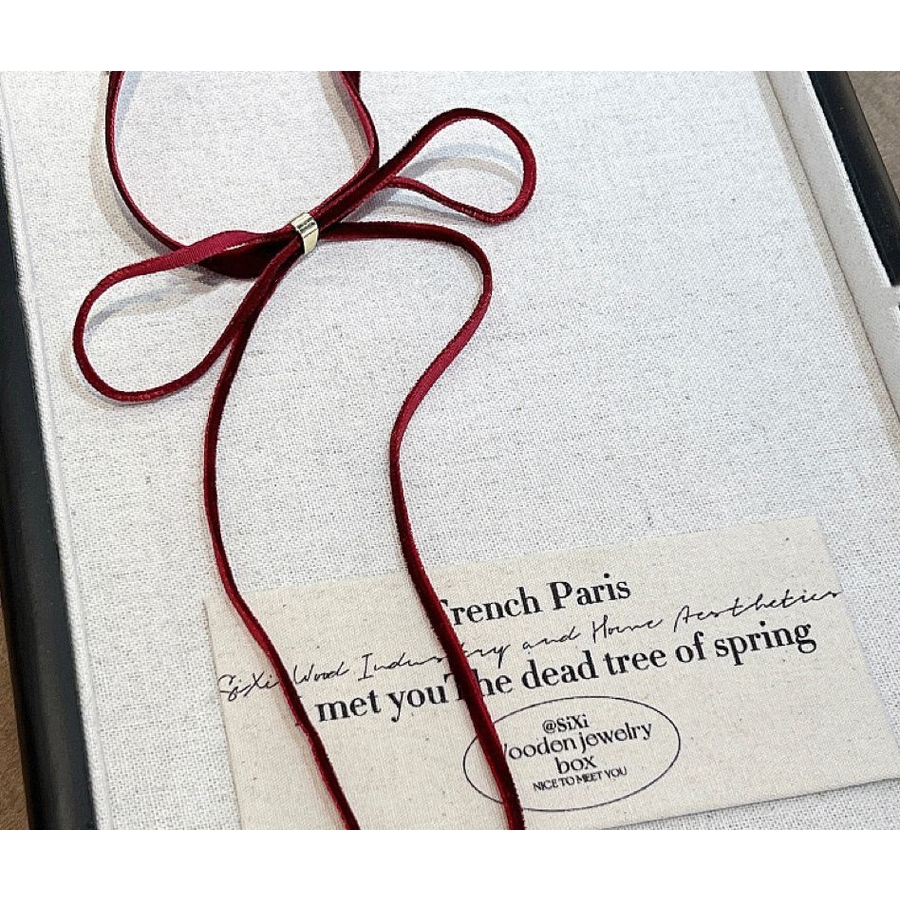 French Paris
SiXi Wood Industry and Home Aesthetics
met you The dead tree of spring
@SiXi
Wooden jewelry
box
NICE TO MEET YOU